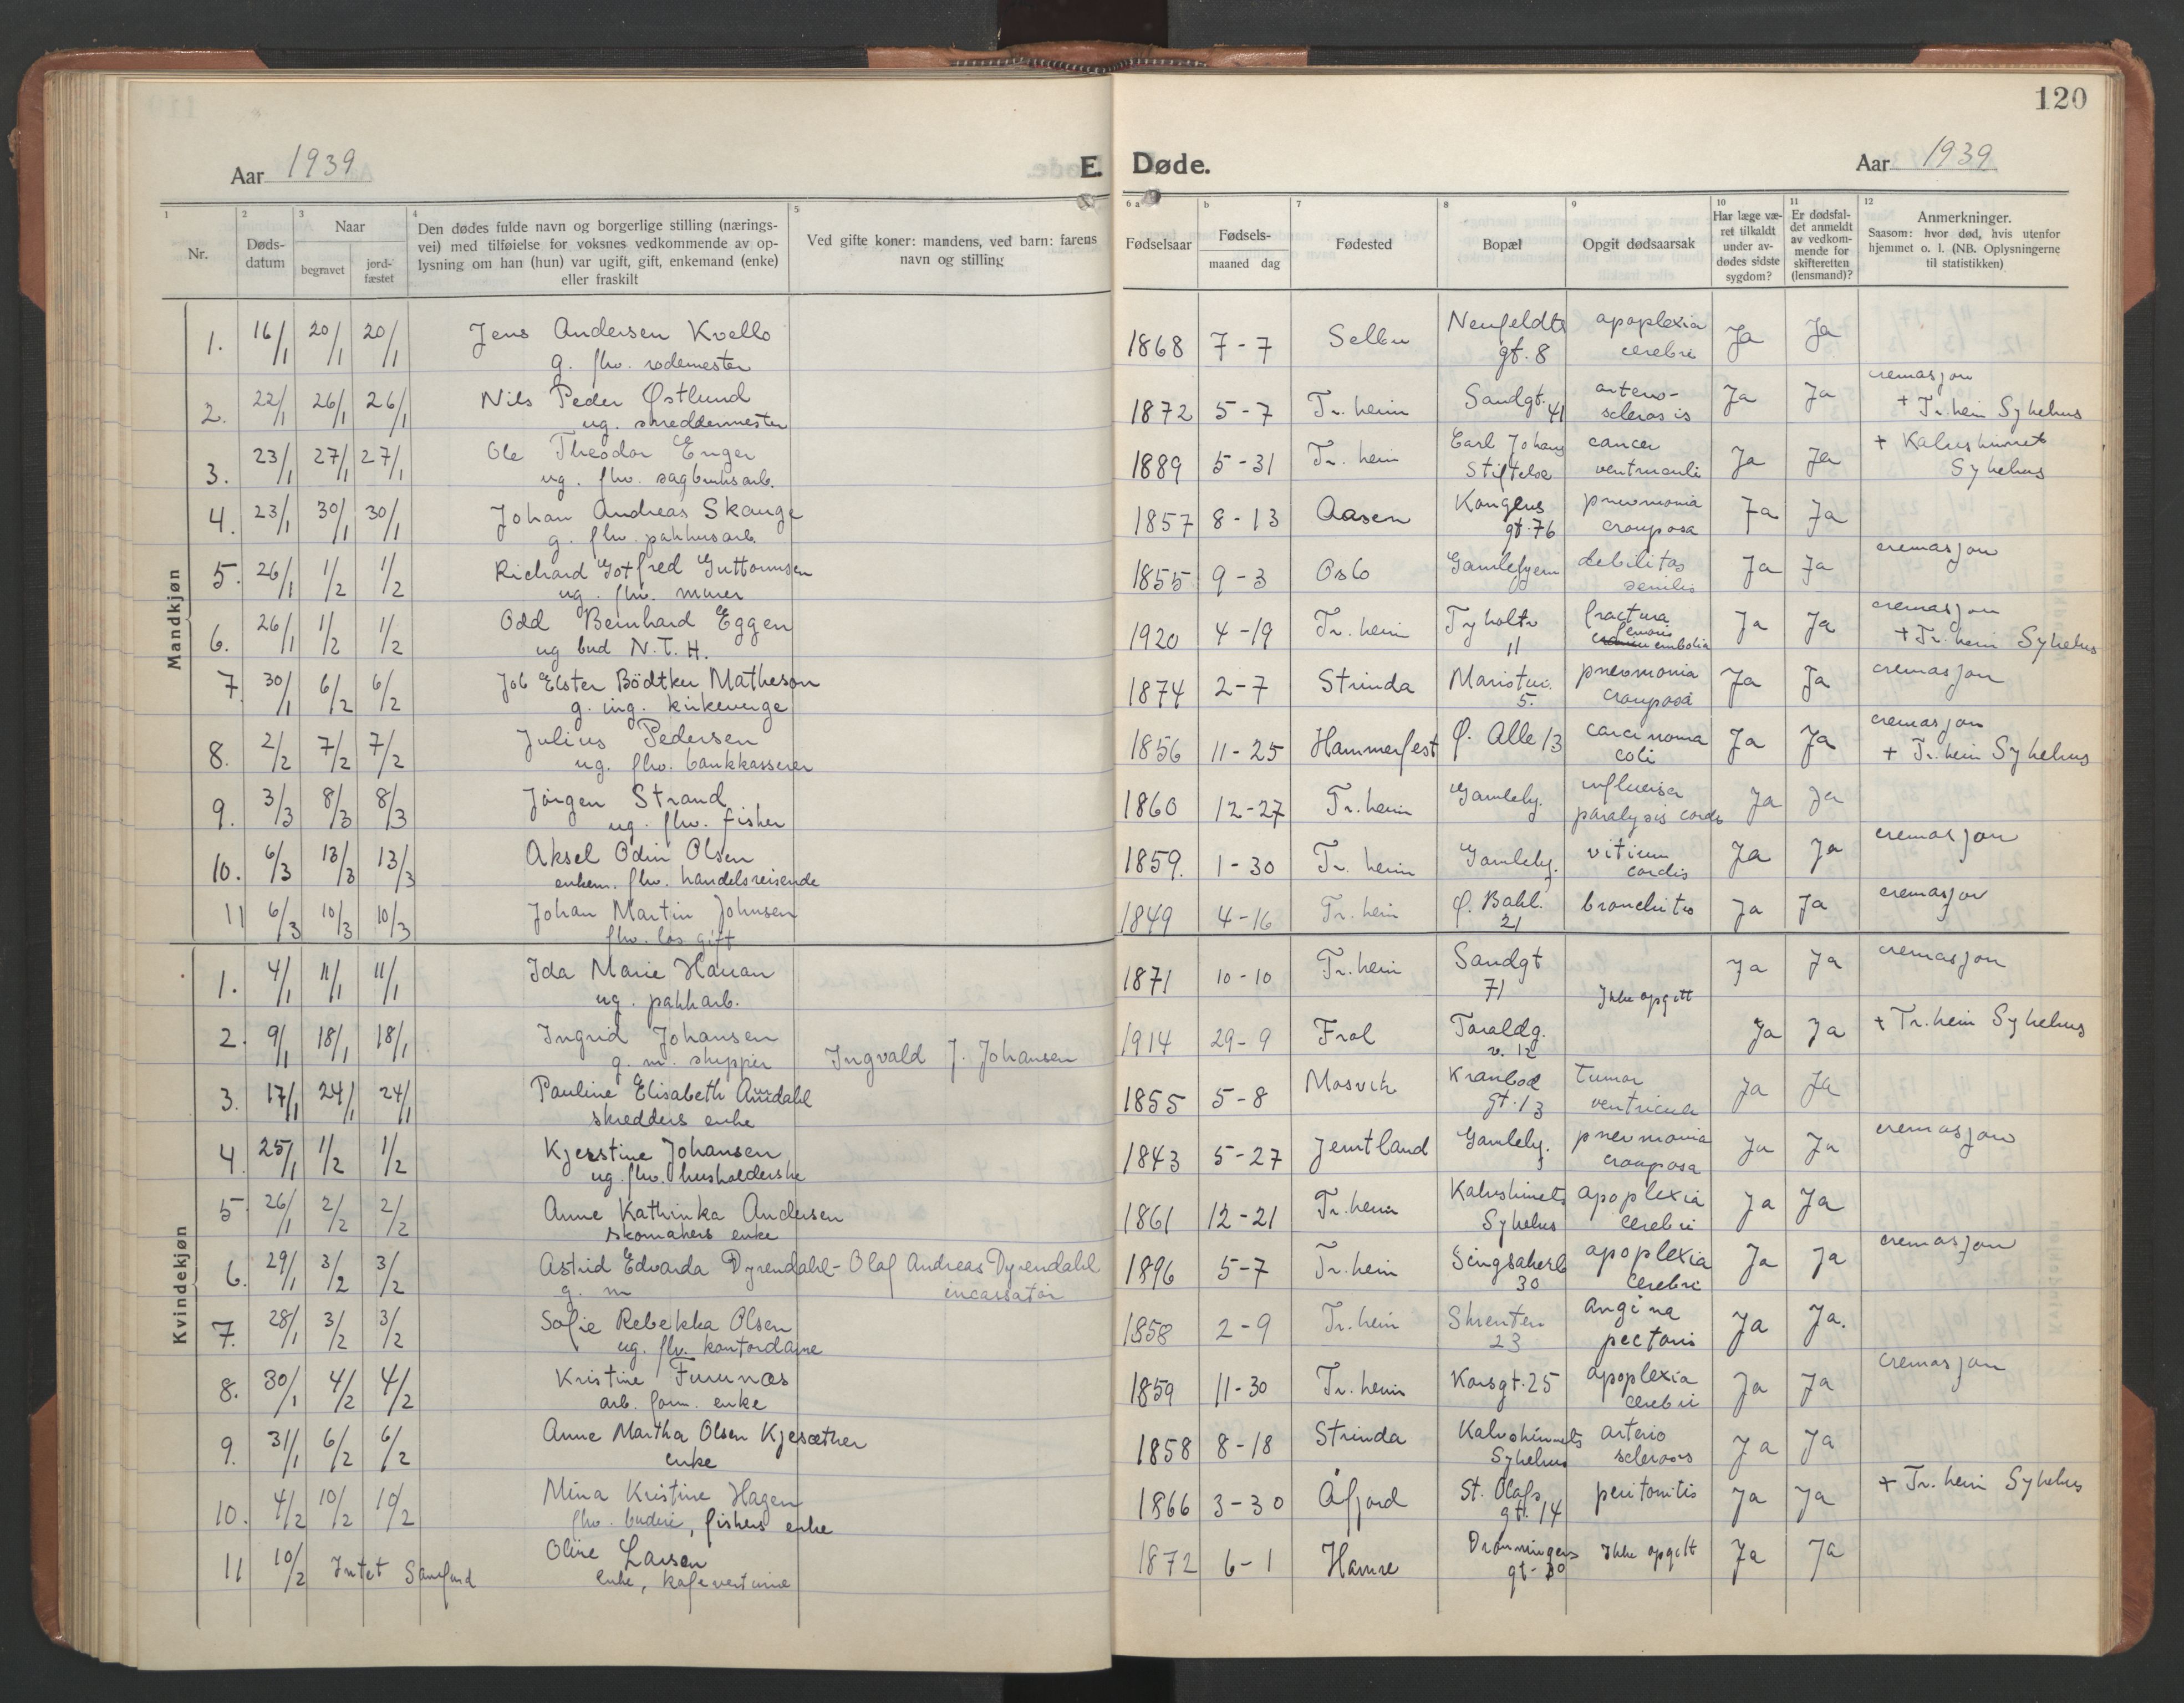 120
Aar 1939
E. Døde.
Aar 1939
1
2
3
4
5
6 a
b
7
8
9
10
11
12
Nr.
Døds-
datum
Naar
begravet
jord-
fæstet
Den dødes fulde navn og borgerlige stilling (nærings-
vei) med tilføielse for voksnes vedkommende av op-
lysning om han (hun) var ugift, gift, enkemand (enke)
eller fraskilt
Ved gifte koner: mandens, ved barn: farens
navn og stilling
Fødselsaar
Fødsels-
maaned dag
Fødested
Bopæl
Opgit dødsaarsak
Har læge væ-
ret tilkaldt
under av-
dødes sidste
sygdom?
Er dødsfal-
det anmeldt
av vedkom-
mende for
skifteretten
(lensmand)?
Anmerkninger.
Saasom: hvor død, hvis utenfor
hjemmet o. l. (NB. Oplysningerne
til statistikken)
Mandkjøn
1. 16/1 20/1 20/1 Jens Andersen Kvello 1868 7-7 Selbu Neufeldts apoplexia Ja Ja
g. fhv. rodemester gt. 8 cerebri
2. 22/1 26/1 26/1 Nils Peder Østlund 1872 5-7 Tr.heim Sandgt. 41 arterio- Ja Ja cremasjon
ug. skreddermester sclerosis + Tr.heim Sykehus
3. 23/1 27/1 27/1 Ole Theodor Enger 1889 5-31 Tr.heim Carl Johans cancer Ja Ja + Kalvskinnet
ug. fhv. sagbruksarb. Stiftelse ventriculi Sykehus
4. 23/1 30/1 30/1 Johan Andreas Skauge 1857 8-13 Aasen Kongens pneumonia Ja Ja
g. fhv. pakhusarb. gt. 76 crouposa
5. 26/1 1/2 1/2 Richard Gotfred Guttormsen 1855 9-3 Oslo Gamlehjem debilitas Ja Ja cremasjon
ug. fhv. murer senilis
6. 26/1 1/2 1/2 Odd Bernhard Eggen 1920 4-19 Tr.heim Tyholtv. fractura Ja Ja cremasjon
ug bud N.T.H. 11 femoris embolia + Tr.heim Sykehus
7 30/1 6/2 6/2 Job Elster Bödtker Matheson 1874 2-7 Strinda Maristui. pneomonia Ja Ja cremasjon
g. ing. kirkeverge 5. crouposa
8. 2/2 7/2 7/2 Julius Pedersen 1856 11-25 Hammerfest Ø. Alle 13 carcinoma Ja Ja cremasjon
ug. fhv. bankkasserer coli + Tr.heim Sykehus
9. 3/3 8/3 8/3 Jörgen Strand 1860 12-27 Tr.heim Gamlehj. influensa Ja Ja
ug. fhv. fisker paralysis cordis
10. 6/3 13/3 13/3 Aksel Odin Olsen 1859. 1-30 Tr.heim Gamlehj. vitium Ja Ja cremasjon
enkem. fhv. handelsreisende cordis
11 6/3 10/3 10/3 Johan Martin Johnsen 1849 4-16 Tr.heim Ø. Bakl. bronchitis Ja Ja cremasjon
fhv. los gift 21
Kvindekjøn
1. 4/1 11/1 11/1 Ida Marie Hauan 1871 10-10 Tr.heim Sandgt Ja Ja cremasjon
ug. pakkarb. 71 Ikke opgitt
2. 9/1 18/1 18/1 Ingrid Johansen 1914 29-9 Frol Toraldg. Ja Ja + Tr.heim Sykehus
g. m. skipper Ingvald J. Johansen v. 12
3. 17/1 24/1 24/1 Pauline Elisabeth Aundahl 1855 5-8 Mosvik Kranbod tumor Ja Ja
skredders enke gt. 13 ventricul
4. 25/1 1/2 1/2 Kjerstine Johansen 1843 5-27 Jemtland Gamlehj. pneumonia Ja Ja cremasjon
ug. fhv. husholderske crouposa
5 26/1 2/2 2/2 Anne Kathinka Andersen 1861 12-21 Tr.heim Kalvskinets apoplexia Ja Ja
skomakers enke Sykehus cerebri
6. 29/1 3/2 3/2 Astrid Edvarda Dyrendahl - Olaf Andreas Dyrendahl 1896 5-7 Tr.heim Singsakerb apoplexia Ja Ja cremasjon
g. m incassator 30 cerebri
7. 28/1 3/2 3/2 Sofie Rebekka Olsen 1858 2-9 Tr.heim Skrenten angina Ja Ja.
ug. fhv. kontordame 23 pectoris
8. 30/1 4/2 4/2 Kristine Furunæs 1859 11-30 Tr.heim Korsgt. 25 apoplexia Ja Ja cremasjon
arb. form. enke cerebri
9. 31/1 6/2 6/2 Anne Martha Olsen Kjesæther 1858 8-18 Strinda Kalvskinnets arterio Ja Ja
enke Sykehus scleroses
10. 4/2 10/2 10/2 Mina Kristine Hagen 1866 3-30 Åfjord St. Olafs peritonitis Ja Ja + Tr.heim Sykehus
fhv. budeie, fiskers enke gt. 14
11 10/2 Intet Samfund Oline Larsen 1872 6-1 Hamre Dronningens Ikke opgitt Ja Ja
enke, kafevertinne gt-30